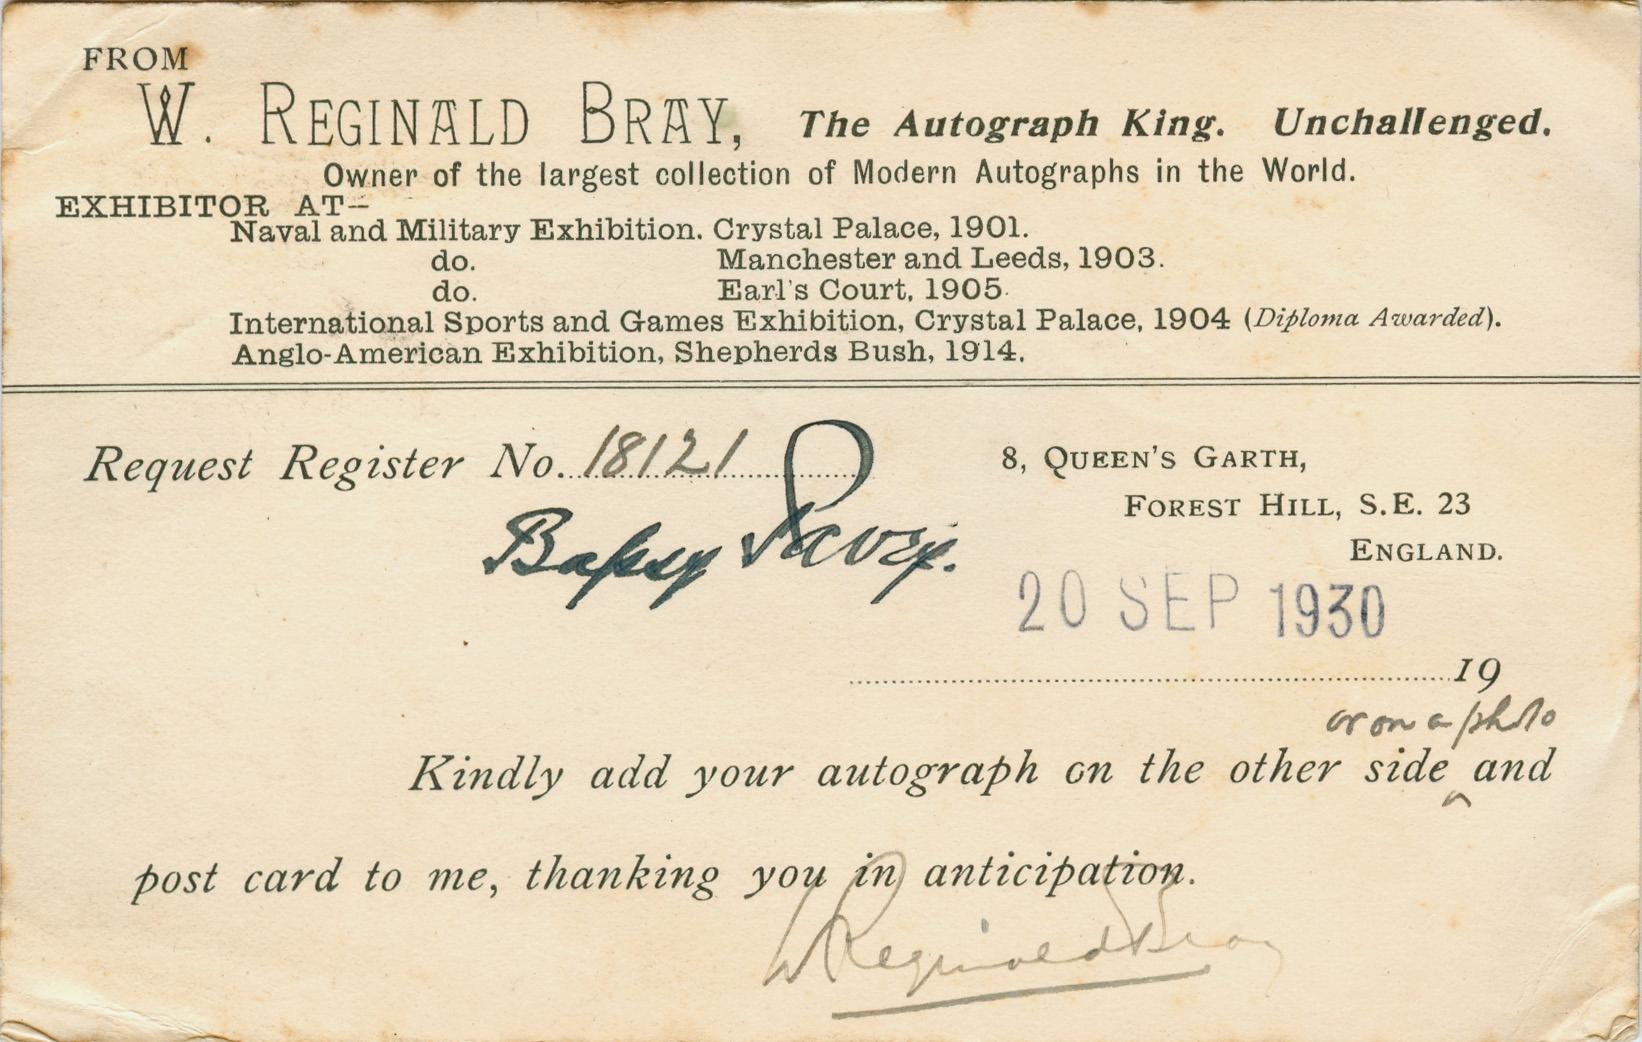 FROM
W. REGINALD BRAY, The Autograph King. Unchallenged.
Owner of the largest collection of Modern Autographs in the World.
EXHIBITOR AT—
Naval and Military Exhibition. Crystal Palace, 1901.
do. Manchester and Leeds, 1903.
do. Earl's Court, 1905.
International Sports and Games Exhibition, Crystal Palace, 1904 (Diploma Awarded).
Anglo-American Exhibition, Shepherds Bush, 1914.
Request Register No. 18121
8, QUEEN'S GARTH,
FOREST HILL, S.E. 23
ENGLAND.
Bapsy Pavry.
20 SEP 1930
19
or on a photo
Kindly add your autograph on the other side ^ and
post card to me, thanking you in anticipation.
W Reginald Bray